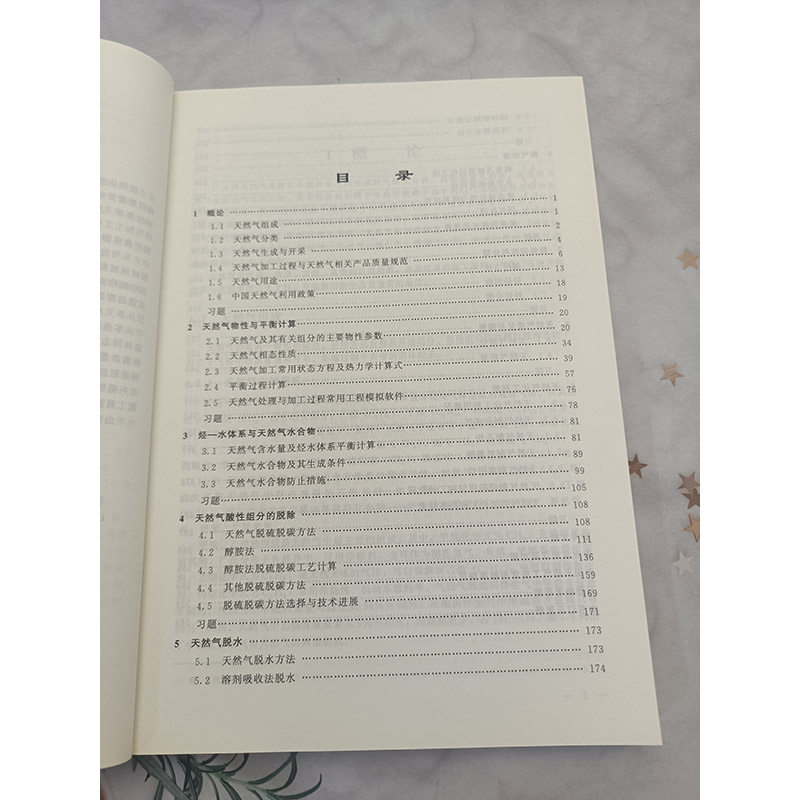 目 录
1 概论 1
1.1 天然气组成 1
1.2 天然气分类 2
1.3 天然气生成与开采 4
1.4 天然气加工过程与天然气相关产品质量规范 6
1.5 天然气用途 13
1.6 中国天然气利用政策 18
习题 19
2 天然气物性与平衡计算 20
2.1 天然气及其有关组分的主要物性参数 20
2.2 天然气相态性质 34
2.3 天然气加工常用状态方程及热力学计算式 39
2.4 平衡过程计算 57
2.5 天然气处理与加工过程常用工程模拟软件 76
习题 78
3 烃—水体系与天然气水合物 81
3.1 天然气含水量及烃水体系平衡计算 81
3.2 天然气水合物及其生成条件 89
3.3 天然气水合物防止措施 99
习题 105
4 天然气酸性组分的脱除 108
4.1 天然气脱硫脱碳方法 108
4.2 醇胺法 111
4.3 醇胺法脱硫脱碳工艺计算 136
4.4 其他脱硫脱碳方法 159
4.5 脱硫脱碳方法选择与技术进展 169
习题 171
5 天然气脱水 173
5.1 天然气脱水方法 173
5.2 溶剂吸收法脱水 174